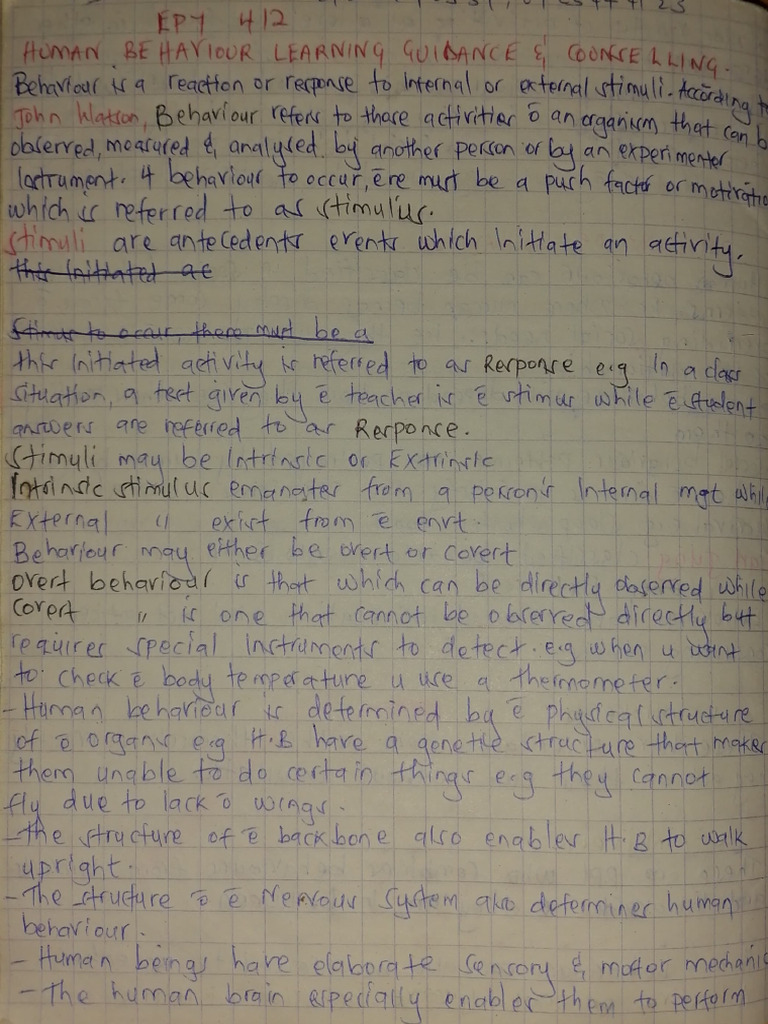 EPY 412
HUMAN BEHAVIOUR LEARNING GUIDANCE & COUNSELLING.
Behaviour is a reaction or response to internal or external stimuli. According to
John Watson, Behaviour refers to those activities ō an organism that can b
observed, measured & analysed by another person or by an experimenter
Instrument. 4 behaviour to occur, ēre must be a push factor or motivatio
which is referred to as stimulus.
Stimuli are antecedents events which initiate an activity.
this initiated ac
Stimus to occur, there must be a
this initiated activity is referred to as Response e.g In a class
situation, a test given by ē teacher is ē stimus while ē student
answers are referred to as Response.
Stimuli may be Intrinsic or Extrinsic
Intrinsic stimulus emanates from a person's internal mgt whil
External " exist from ē envt.
Behaviour may either be overt or covert
overt behaviour is that which can be directly observed while
covert " is one that cannot be observed directly but
requires special instruments to detect. e.g when u want
to check ē body temperature u use a thermometer.
- Human behaviour is determined by ē physical structure
of ō organs e.g H.B have a genetic structure that makes
them unable to do certain things e.g they cannot
fly due to lack ō wings.
- The structure of ē backbone also enables H.B to walk
upright.
- The structure ō ē Nervous system also determines human
behaviour.
- Human beings have elaborate sensory & motor mechani
- The human brain especially enables them to perform